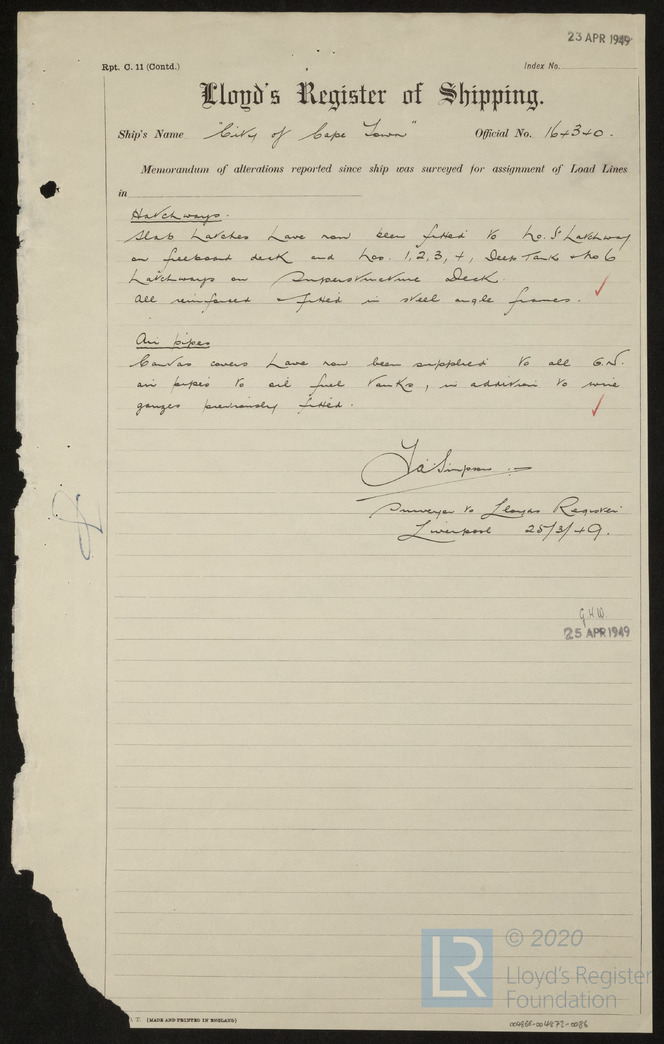 23 APR 1949
Rpt. C. 11 (Contd.)
Index No.
Lloyd's Register of Shipping.
Ship's Name "City of Cape Town" Official No. 164340.
Memorandum of alterations reported since ship was surveyed for assignment of Load Lines
in
Hatchways.
Slab hatches have now been fitted to No. 5 hatchway
on freeboard deck and Nos. 1, 2, 3, 4, Deep Tank & No 6
hatchways on Superstructure Deck.
All reinforced & fitted in steel angle frames.
Air pipes
Canvas covers have now been supplied to all G.N.
air pipes to oil fuel tanks, in addition to wire
gauzes previously fitted.
Simpson
Surveyor to Lloyds Register
Liverpool 25/3/49.
G.H.W.
25 APR 1949
LR © 2020
Lloyd's Register
Foundation
T. (MADE AND PRINTED IN ENGLAND)